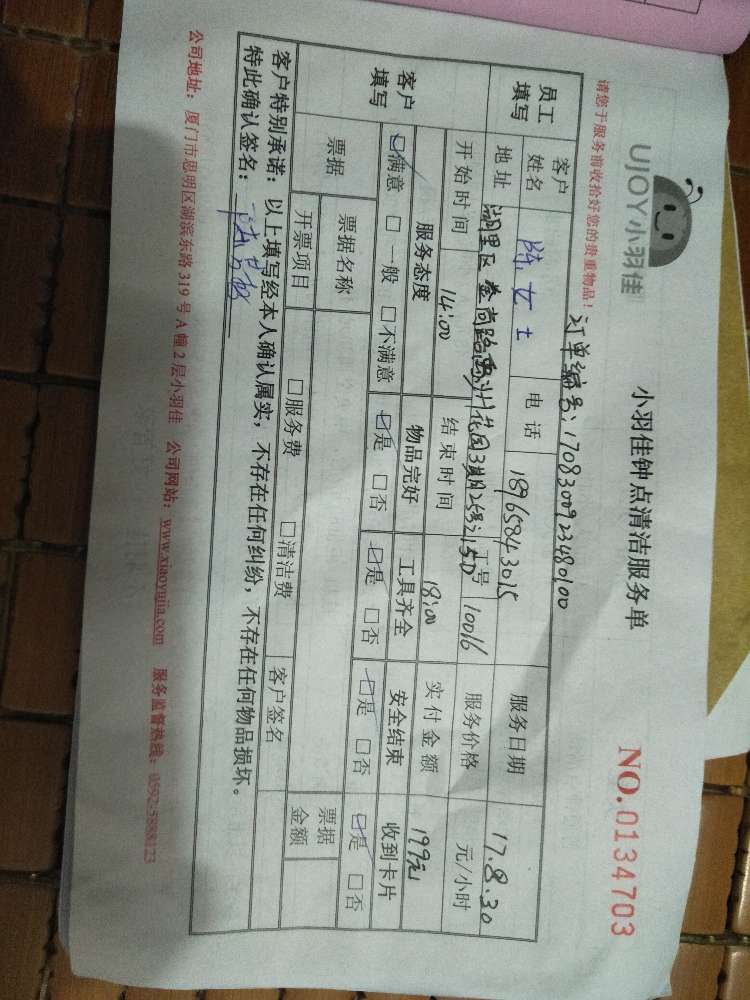 UJOY小羽佳
小羽佳钟点清洁服务单
NO.0134703
请您于服务前收拾好您的贵重物品！
订单编号：170830092348000
员工填写
客户姓名 陈女士 电话 18965843015 服务日期 17.8.30
地址 湖里区 花园3期25号 150 工号 10016 服务价格 元/小时
开始时间 14:00 结束时间 18:00 实付金额 199元
客户填写
服务态度 物品完好 工具齐全 安全结束 收到卡片
☑满意 □一般 □不满意 ☑是 □否 ☑是 □否 ☑是 □否 ☑是 □否
票据 票据名称 客户签名 票据金额
开票项目 □服务费 □清洁费
客户特别承诺：以上填写经本人确认属实，不存在任何纠纷，不存在任何物品损坏。
特此确认签名：
公司地址：厦门市思明区湖滨东路319号A幢2层小羽佳 公司网站：www.xiaoyujia.com 服务监督热线：0592-5888123